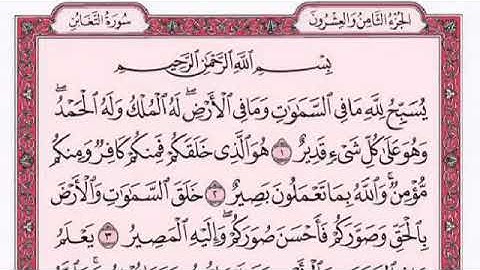 الجزء الثامن والعشرون
سورة التغابن
بِسْمِ ٱللَّهِ ٱلرَّحْمَٰنِ ٱلرَّحِيمِ
يُسَبِّحُ لِلَّهِ مَا فِي ٱلسَّمَٰوَٰتِ وَمَا فِي ٱلْأَرْضِ ۖ لَهُ ٱلْمُلْكُ وَلَهُ ٱلْحَمْدُ ۖ
وَهُوَ عَلَىٰ كُلِّ شَيْءٍ قَدِيرٌ ١ هُوَ ٱلَّذِي خَلَقَكُمْ فَمِنكُمْ كَافِرٌ وَمِنكُم
مُّؤْمِنٌ ۚ وَٱللَّهُ بِمَا تَعْمَلُونَ بَصِيرٌ ٢ خَلَقَ ٱلسَّمَٰوَٰتِ وَٱلْأَرْضَ
بِٱلْحَقِّ وَصَوَّرَكُمْ فَأَحْسَنَ صُوَرَكُمْ ۖ وَإِلَيْهِ ٱلْمَصِيرُ ٣ يَعْلَمُ